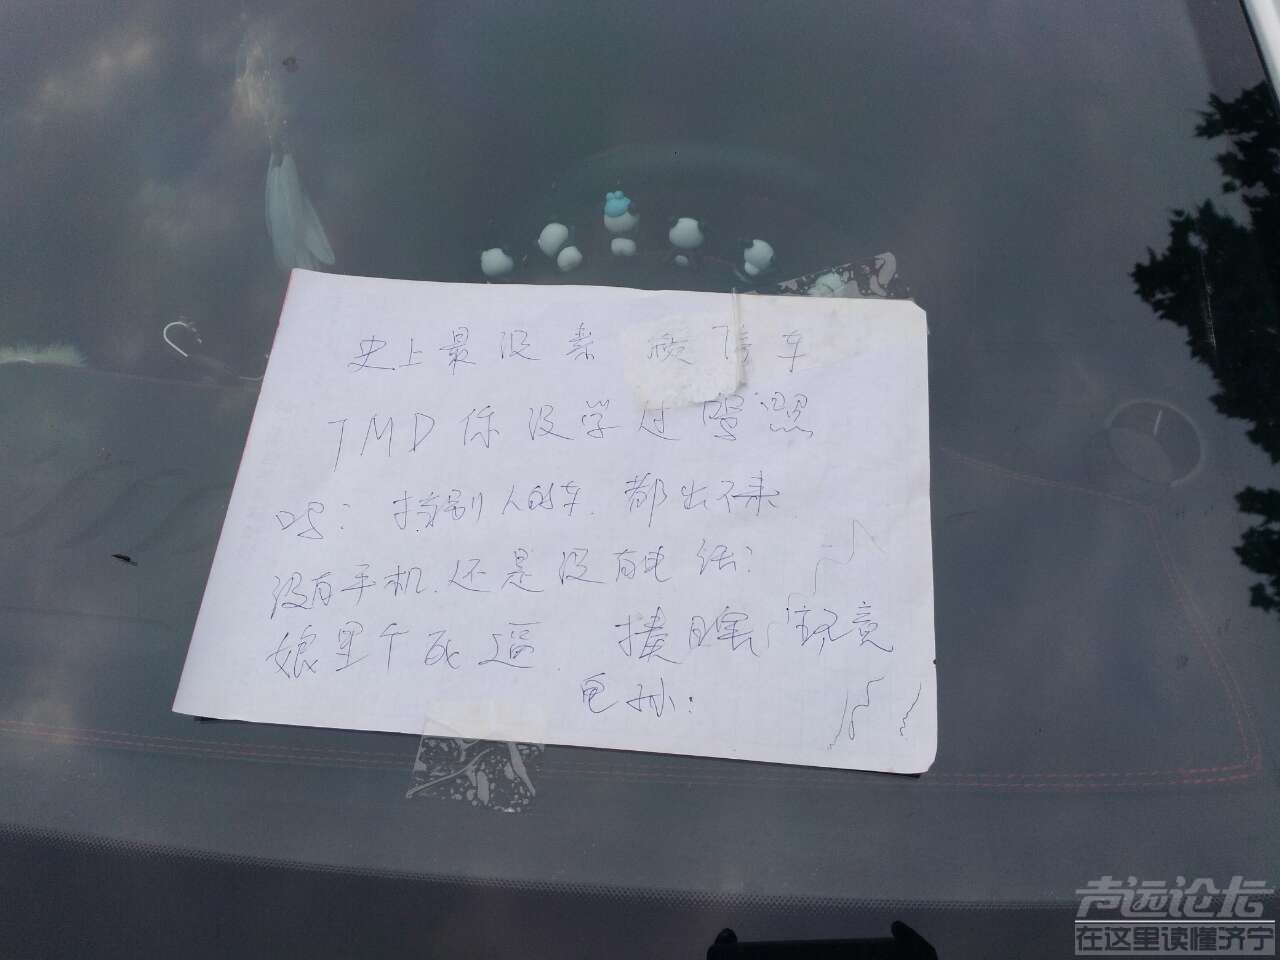 史上最没素 停车
TMD你没学过驾照
吗? 挡别人的车.都出不来
没有手机.还是没有电话?
娘里个死逼. 揍瞎 境
电话:
声远论坛
在这里读懂济宁